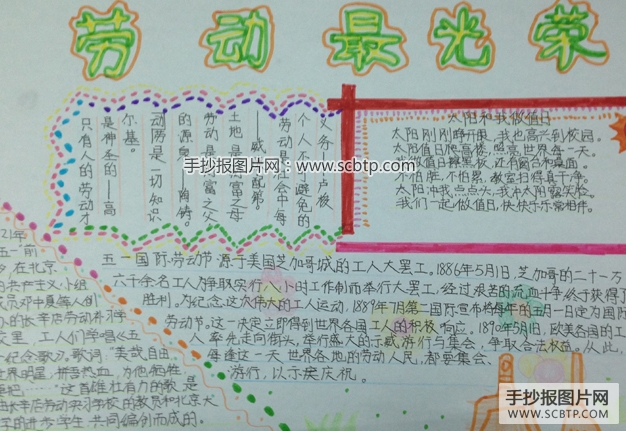 劳动最光荣
义务——卢梭
个人不可避免的
劳动是社会中每
——威廉·配第。
土地是财富之母
劳动是财富之父
的源泉——陶铸。
动两是一切知识
尔基。
是神圣的——高
只有人的劳动才
太阳和我做值日
太阳刚刚睁开眼,我也高兴到校园。
太阳值日爬高楼,照亮世界每一天。
不怕脏,不怕累,教室扫得真干净。
太阳冲我点点头,我冲太阳露笑脸。
我们一起做值日,快快乐乐常相伴。
手抄报图片网:www.scbtp.com
五一国际劳动节源于美国芝加哥城的工人大罢工。1886年5月1日,芝加哥的二十一万
六千余名工人为争取实行八小时工作制而举行大罢工,经过艰苦的流血斗争终于获得了
胜利。为纪念这次伟大的工人运动,1889年7月第二国际宣布将每年的五月一日定为国际
劳动节。这一决定立即得到世界各国工人的积极响应。1890年5月1日,欧美各国的工
人率先走向街头,举行盛大的示威游行与集会,争取合法权益。从此,
每逢这一天世界各地的劳动人民,都要集会、
游行,以示庆祝。
21年
五一"前
夕在北京
的共产主义小组
成员邓中夏等人创
办的长辛店劳动补习学
校里,工人们学唱《五
一纪念歌》。歌词"美哉自由,
世界明星,拼吾热血,为他牺牲
这首雄壮有力的歌是
由长辛店劳动实习学校的教员和北京大
学的进步学生共同编创而成的。
手抄报图片网
WWW.SCBTP.COM